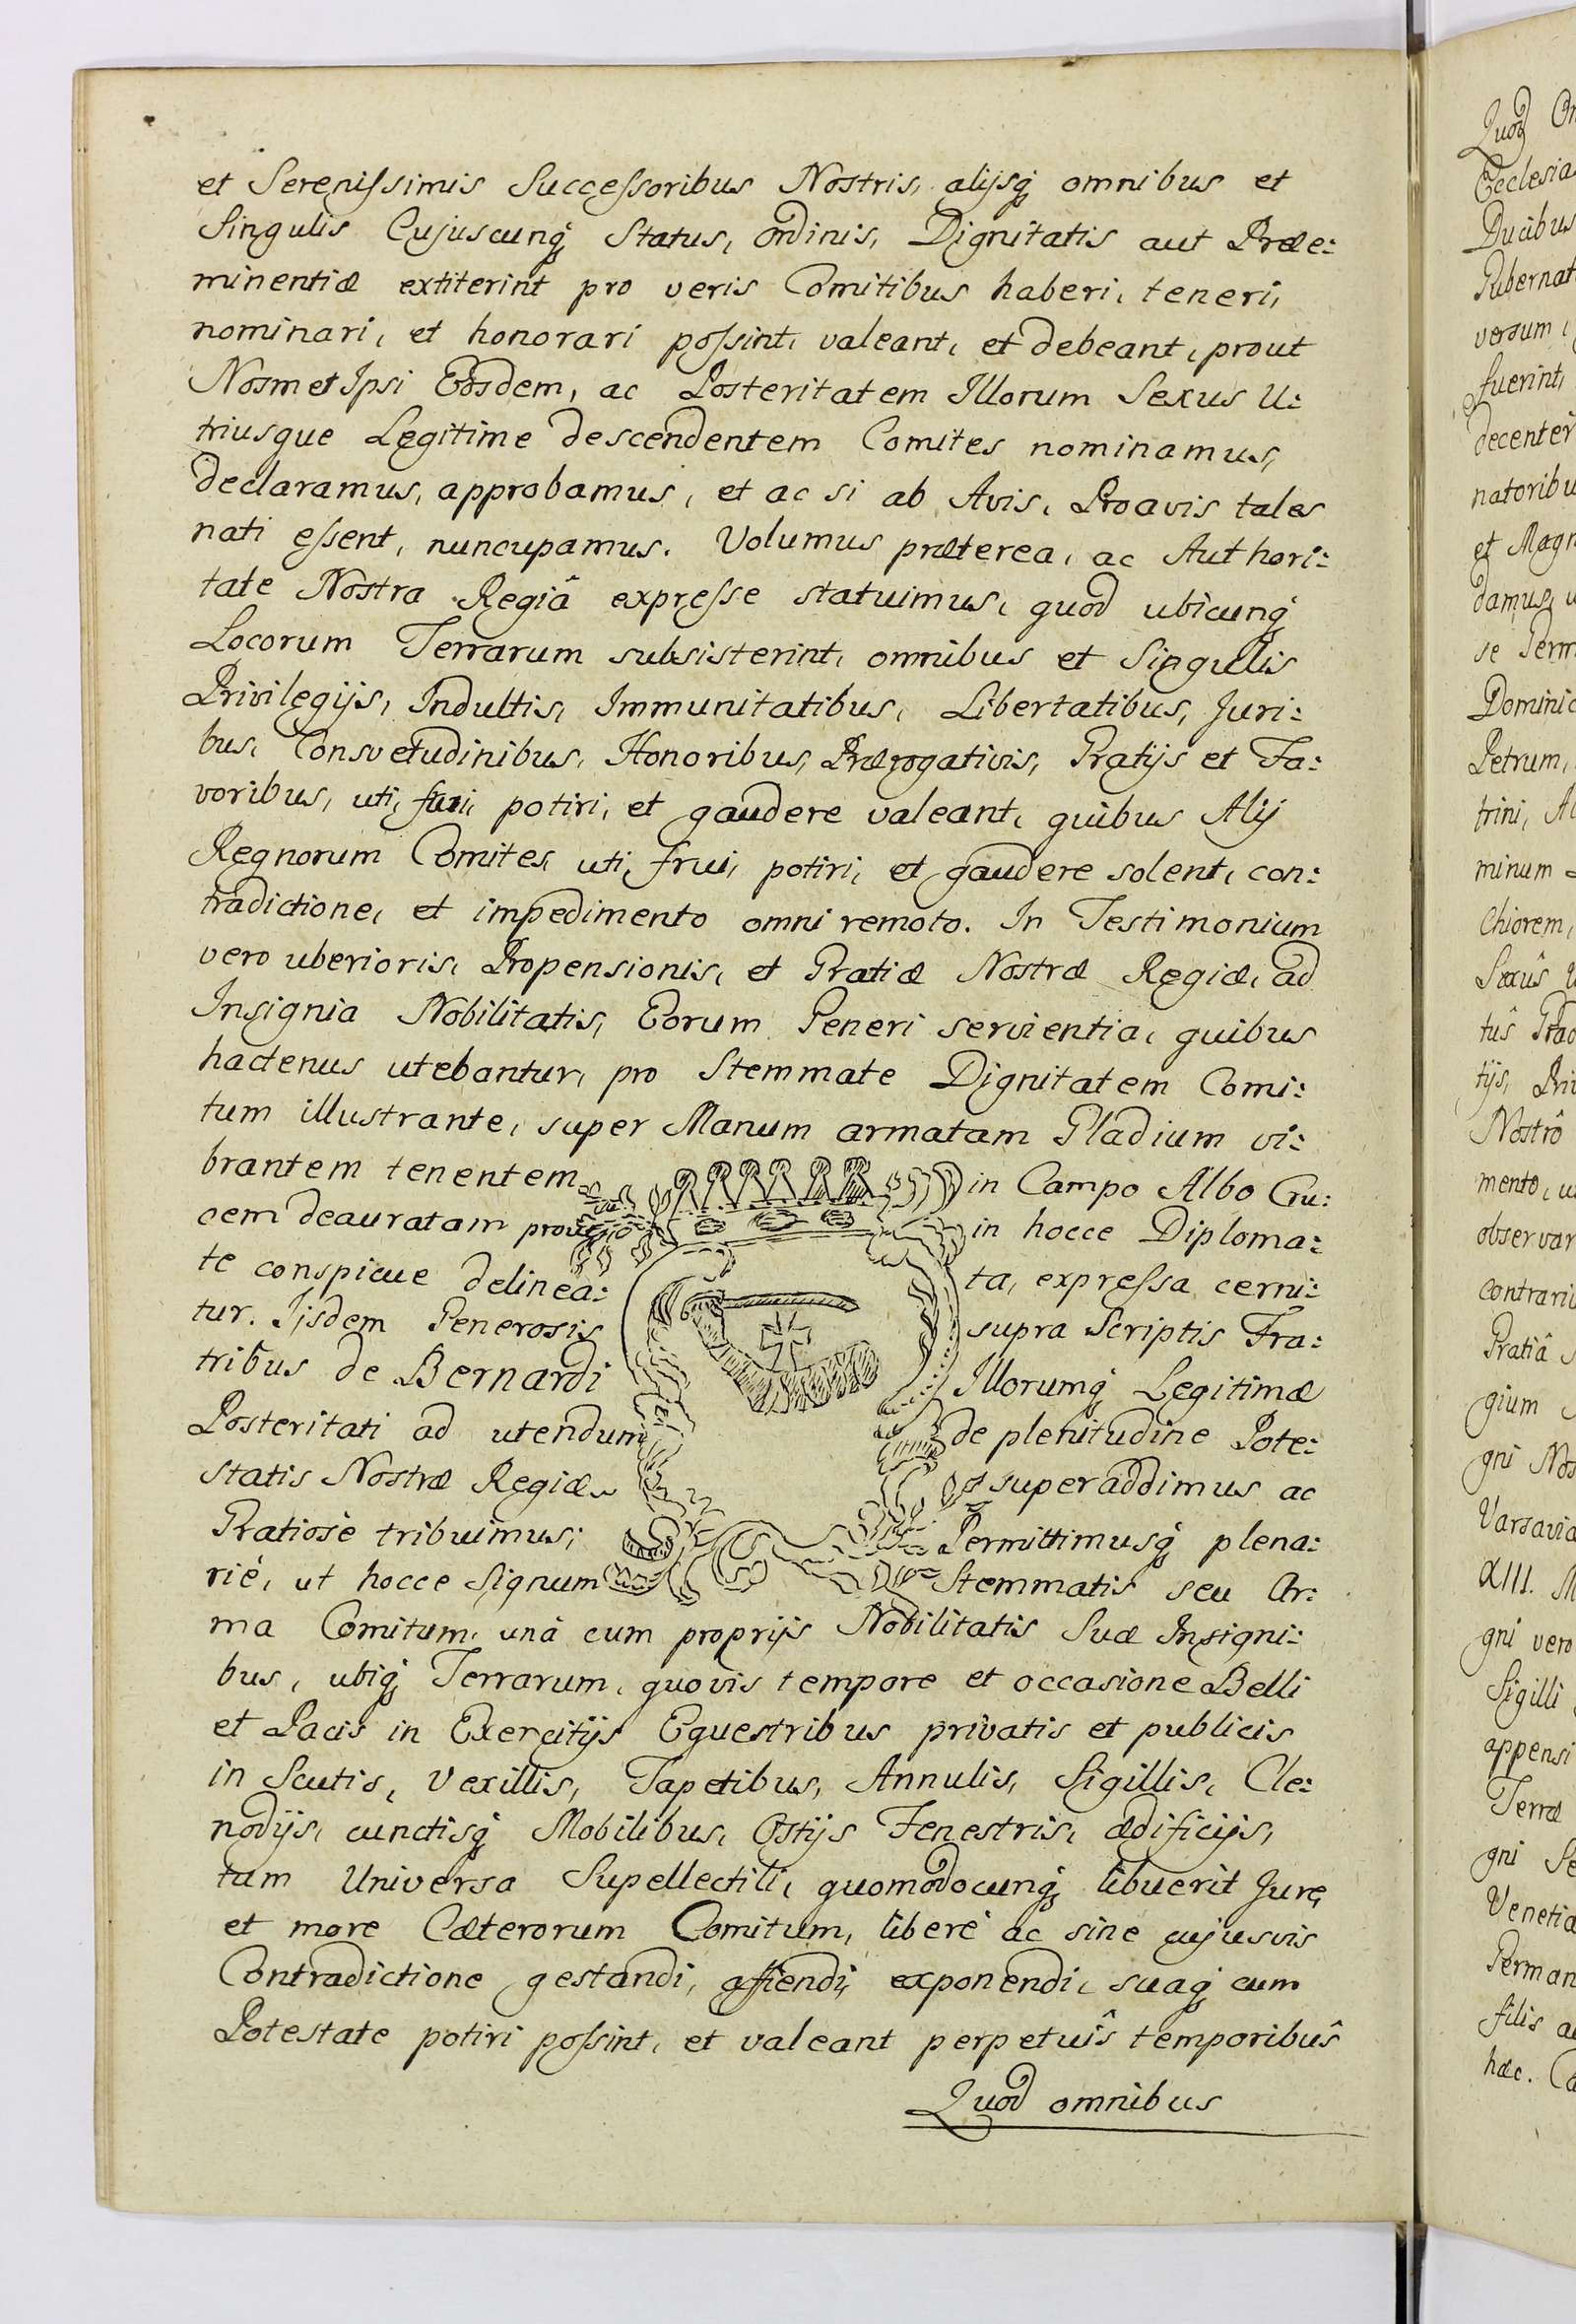 et Serenissimis Successoribus Nostris, alijsq; omnibus et
Singulis Cujuscunq; Status, ordinis, Dignitatis aut Præe:
minentiæ extiterint pro veris Comitibus haberi, teneri,
nominari, et honorari possint, valeant, et debeant, prout
Nosmet Ipsi Eosdem, ac Posteritatem Illorum Sexus U:
triusque Legitime descendentem Comites nominamus,
declaramus, approbamus, et ac si ab Avis, Proavis tales
nati essent, nuncupamus. Volumus præterea, ac Authori:
tate Nostra Regiâ expresse statuimus, quod ubicunq;
Locorum Terrarum subsisterint, omnibus et Singulis
Privilegijs, Indultis, Immunitatibus, Libertatibus, Juri:
bus, Consvetudinibus, Honoribus, Prærogativis, Gratijs et Fa:
voribus, uti, frui, potiri, et gaudere valeant, quibus Alij
Regnorum Comites, uti, frui, potiri, et gaudere solent, con:
tradictione, et impedimento omni remoto. In Testimonium
vero uberioris, Propensionis, et Gratiæ Nostræ Regiæ, ad
Insignia Nobilitatis, Eorum Generi servientia, quibus
hactenus utebantur, pro Stemmate Dignitatem Comi:
tum illustrante, super Manum armatam Gladium vi:
brantem tenentem in Campo Albo Cru:
cem deauratam prout in hocce Diploma:
te conspicue delinea: ta, expressa cerni:
tur. Iisdem Generosis supra Scriptis Fra:
tribus de Bernardi Illorumq; Legitimæ
Posteritati ad utendum de plenitudine Pote:
statis Nostræ Regiæ superaddimus ac
Gratiosè tribuimus; Permittimusq; plena:
riè, ut hocce Signum Stemmatis seu Ar:
ma Comitum, unà cum proprijs Nobilitatis Suæ Insigni:
bus, ubiq; Terrarum, quovis tempore et occasione Belli
et Pacis in Exercitijs Equestribus privatis et publicis
in Scutis, Vexillis, Tapetibus, Annulis, Sigillis, Cle:
nodijs, cunctisq; Mobilibus, Ostijs Fenestris, ædificijs,
tum Universa Supellectili, quomodocunq; libuerit Jure,
et more Cæterorum Comitum, liberè ac sine cujusvis
Contradictione gestandi, exponendi, suaq; cum
Potestate potiri possint, et valeant perpetuîs temporibuŝ
Quod omnibus
Quod
Ducibus
versum,
fuerint,
decenter
et Magn
damus, u
se
Petrum,
trini, Al
minum
chiorem,
tijs, Pri
Nostrô
mento, u
observar
Gratiâ
gium
gni Nos
Varsavia
XIII. M
gni vero
Sigilli
appensi
Terræ
gni Se
filis
hæc. Ca